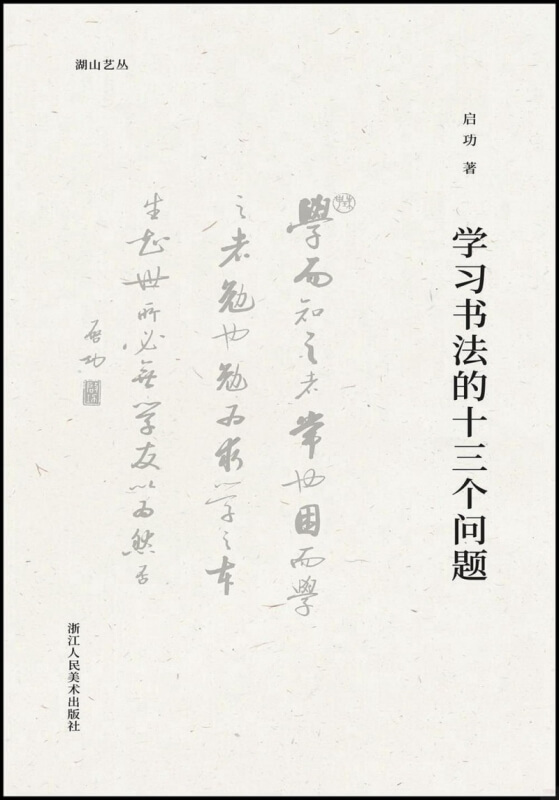 湖山艺丛
启功 著
学习书法的十三个问题
學而知之者常也困而學
之者勉也勉为求学之本
生知世所必無学友以为然否
启功
浙江人民美术出版社